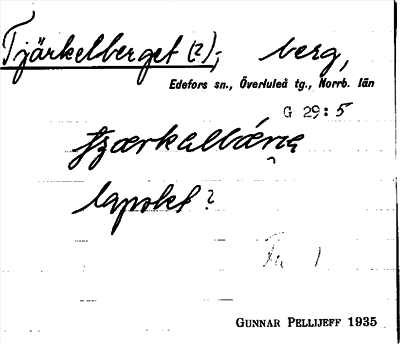 Tjärkelberget (2); berg,
Edefors sn., Överluleå tg., Norrb. län
G 29:5
lapskt?
GUNNAR PELLIJEFF 1935